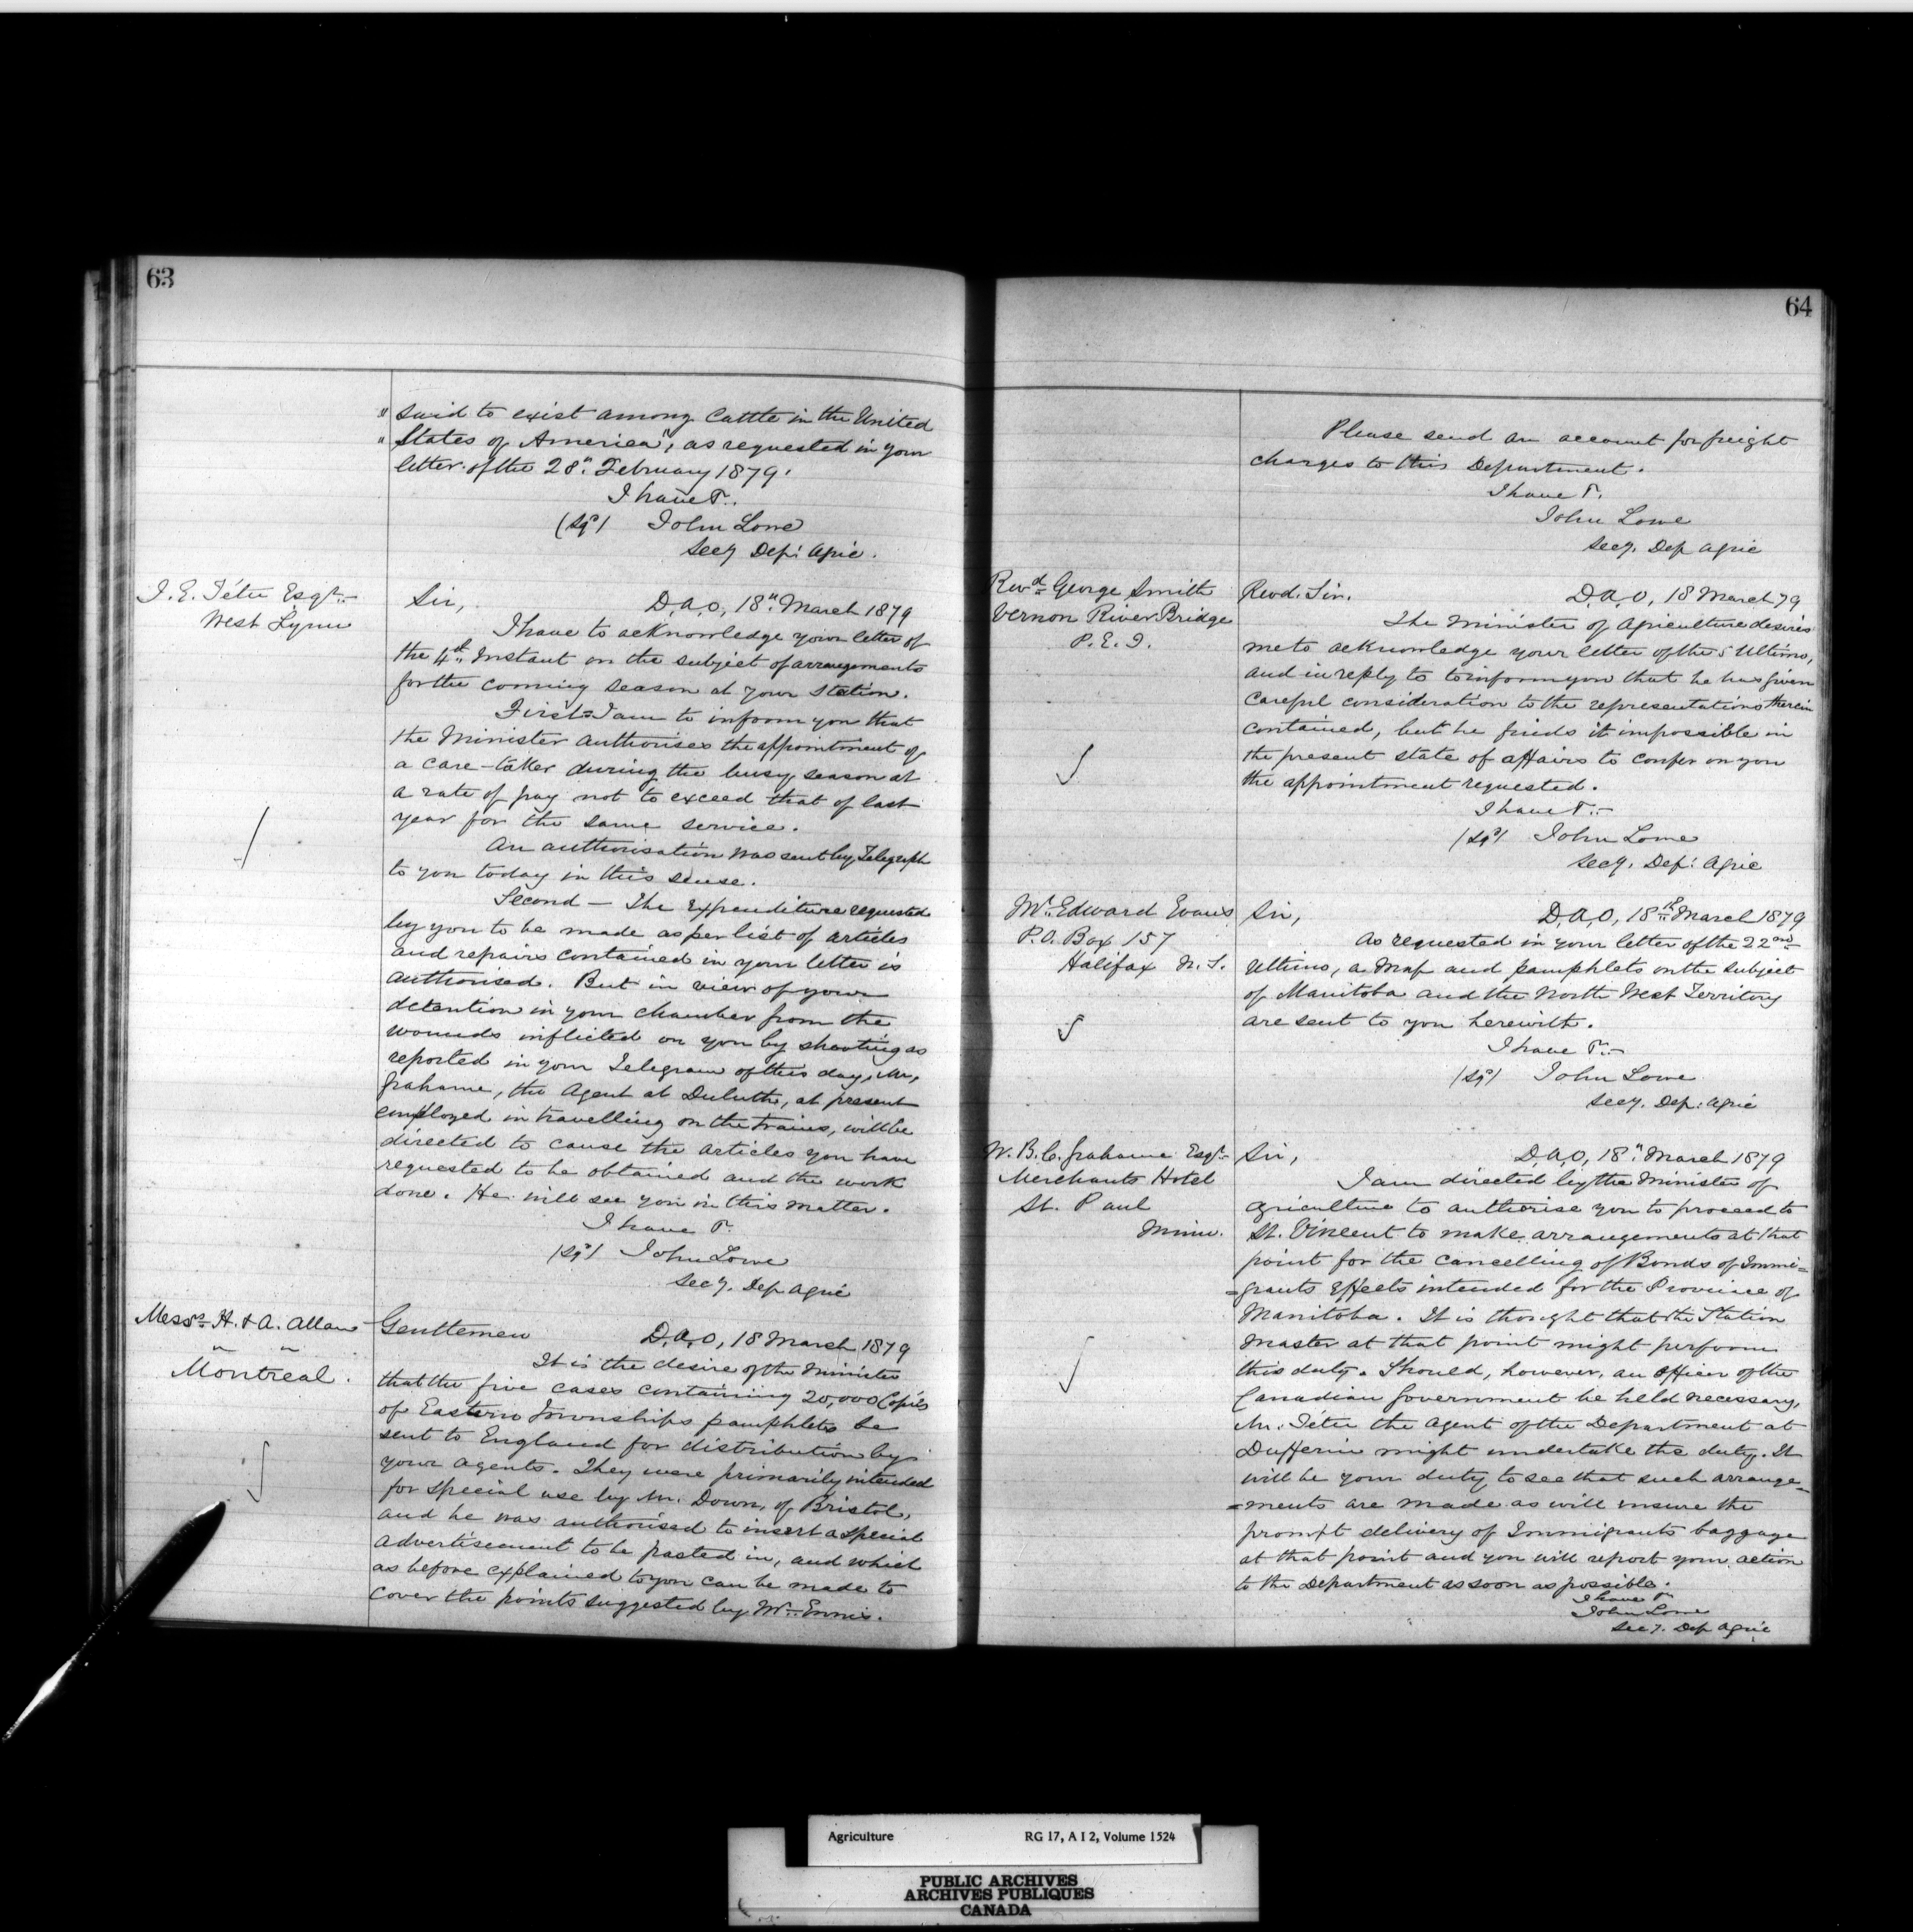 63
" said to exist among Cattle in the United
" States of America", as requested in your
letter of the 28th February 1879.
I have &c.
(sgd) John Lowe
Secy Dep: Agric.
J. E. Têtu Esqr.
West Lynne
Sir,
D.A.O, 18th March 1879
I have to acknowledge your letter of
the 4th Instant on the subject of arrangements
for the coming season at your station.
First = I am to inform you that
the Minister authorises the appointment of
a care-taker during the busy season at
a rate of pay not to exceed that of last
year for the same service.
An authorisation was sent by Telegraph
to you today in this sense.
Second — The Expenditure requested
by you to be made as per list of articles
and repairs contained in your letter is
authorised. But in view of your
detention in your chamber from the
wounds inflicted on you by shooting as
reported in your Telegram of this day, Mr.
Grahame, the Agent at Duluth, at present
employed in travelling on the trains, will be
directed to cause the articles you have
requested to be obtained and the work
done. He will see you in this matter.
I have &c.
(sgd) John Lowe
Secy. Dep Agric
Messrs. H. & A. Allan
" "
Montreal.
Gentlemen
D.A.O, 18 March 1879
It is the desire of the Minister
that the five cases containing 20,000 Copies
of Eastern Townships pamphlets be
sent to England for distribution by
your agents. They were primarily intended
for special use by Mr. Down, of Bristol,
and he was authorised to insert a special
advertisement to be pasted in, and which
as before explained to you can be made to
cover the points suggested by Mr. Ennis.
64
Please send an account for freight
charges to this Department.
I have &c.
John Lowe
Secy. Dep Agric
Revd. George Smith
Vernon River Bridge
P.E.I.
Revd. Sir.
D.A.O, 18 March 79
The Minister of Agriculture desires
me to acknowledge your letter of the 5 Ultimo,
and in reply to to inform you that he has given
careful consideration to the representations therein
contained, but he finds it impossible in
the present state of affairs to confer on you
the appointment requested.
I have &c.
(sgd) John Lowe
Secy. Dep: Agric
Mr. Edward Evans
P.O. Box 157
Halifax N.S.
Sir,
D.A.O, 18th March 1879
As requested in your letter of the 22nd
Ultimo, a Map and pamphlets on the subject
of Manitoba and the North West Territory
are sent to you herewith.
I have &c.
(sgd) John Lowe
Secy. Dep: Agric
W. B. C. Grahame Esqr.
Merchants Hotel
St. Paul
Minn.
Sir,
D.A.O, 18th March 1879
I am directed by the Minister of
Agriculture to authorise you to proceed to
St. Vincent to make arrangements at that
point for the cancelling of Bonds of Immi=
=grants Effects intended for the Province of
Manitoba. It is thought that the Station
Master at that point might perform
this duty. Should, however, an Officer of the
Canadian Government be held necessary,
Mr. Têtu the Agent of the Department at
Dufferin might undertake the duty. It
will be your duty to see that such arrange=
=ments are made as will insure the
prompt delivery of Immigrants baggage
at that point and you will report your action
to the Department as soon as possible.
I have &c
John Lowe
Secy. Dep Agric
Agriculture RG 17, A I 2, Volume 1524
PUBLIC ARCHIVES
ARCHIVES PUBLIQUES
CANADA